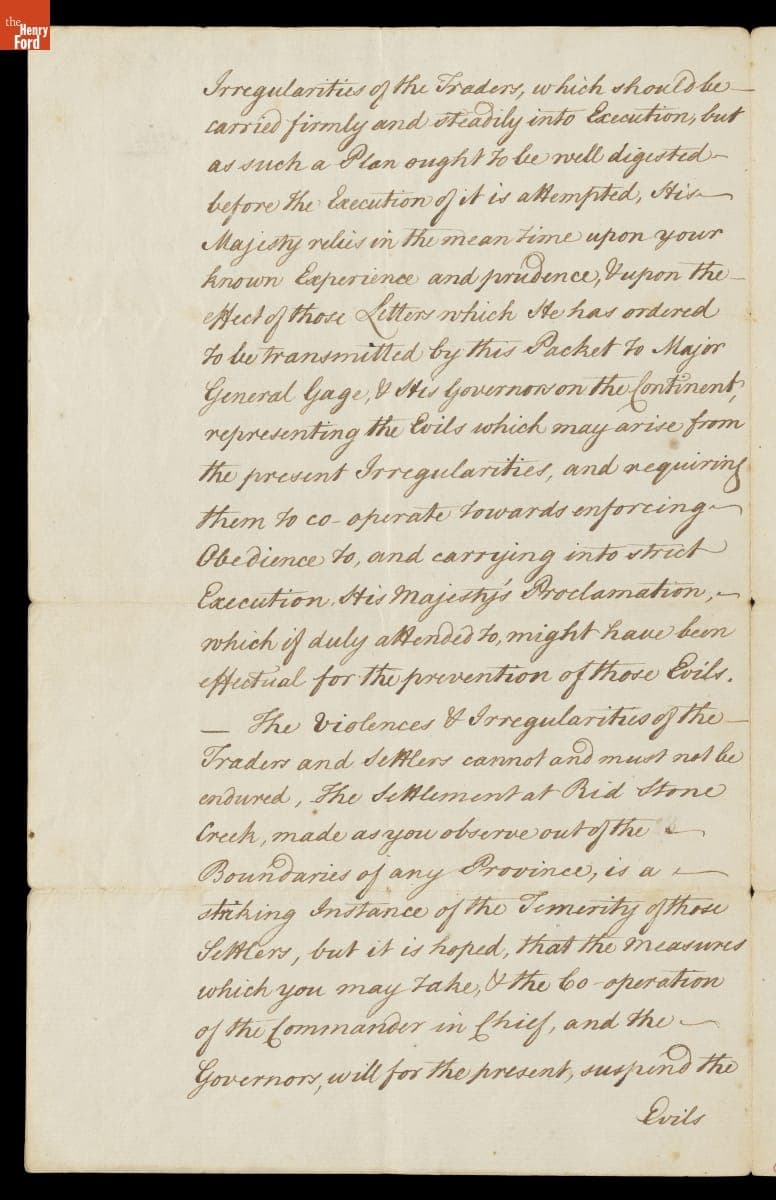 the
Henry
Ford
Irregularities of the Traders, which should be
carried firmly and steadily into Execution, but
as such a Plan ought to be well digested
before the Execution of it is attempted, His
Majesty relies in the mean time upon your
known Experience and prudence, & upon the
effect of those Letters which He has ordered
to be transmitted by this Packet to Major
General Gage, & His Governors on the Continent,
representing the Evils which may arise from
the present Irregularities, and requiring
them to co-operate towards enforcing
Obedience to, and carrying into strict
Execution, His Majesty's Proclamation,
which if duly attended to, might have been
effectual for the prevention of those Evils.
— The Violences & Irregularities of the
Traders and Settlers cannot and must not be
endured, The Settlement at Rid Stone
Creek, made as you observe out of the
Boundaries of any Province, is a
striking Instance of the Temerity of those
Settlers, but it is hoped, that the measures
which you may take, & the Co-operation
of the Commander in Chief, and the
Governors, will for the present, suspend the
Evils